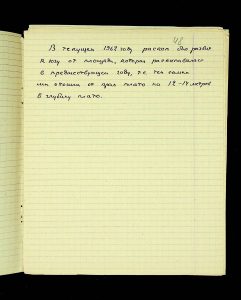 48
В текущем 1962 году раскоп был развит
к югу от площади, которая раскапывалась
в предшествующем году, т.е. тем самым
мы отошли от края плато на 12-14 метров
в глубину плато.